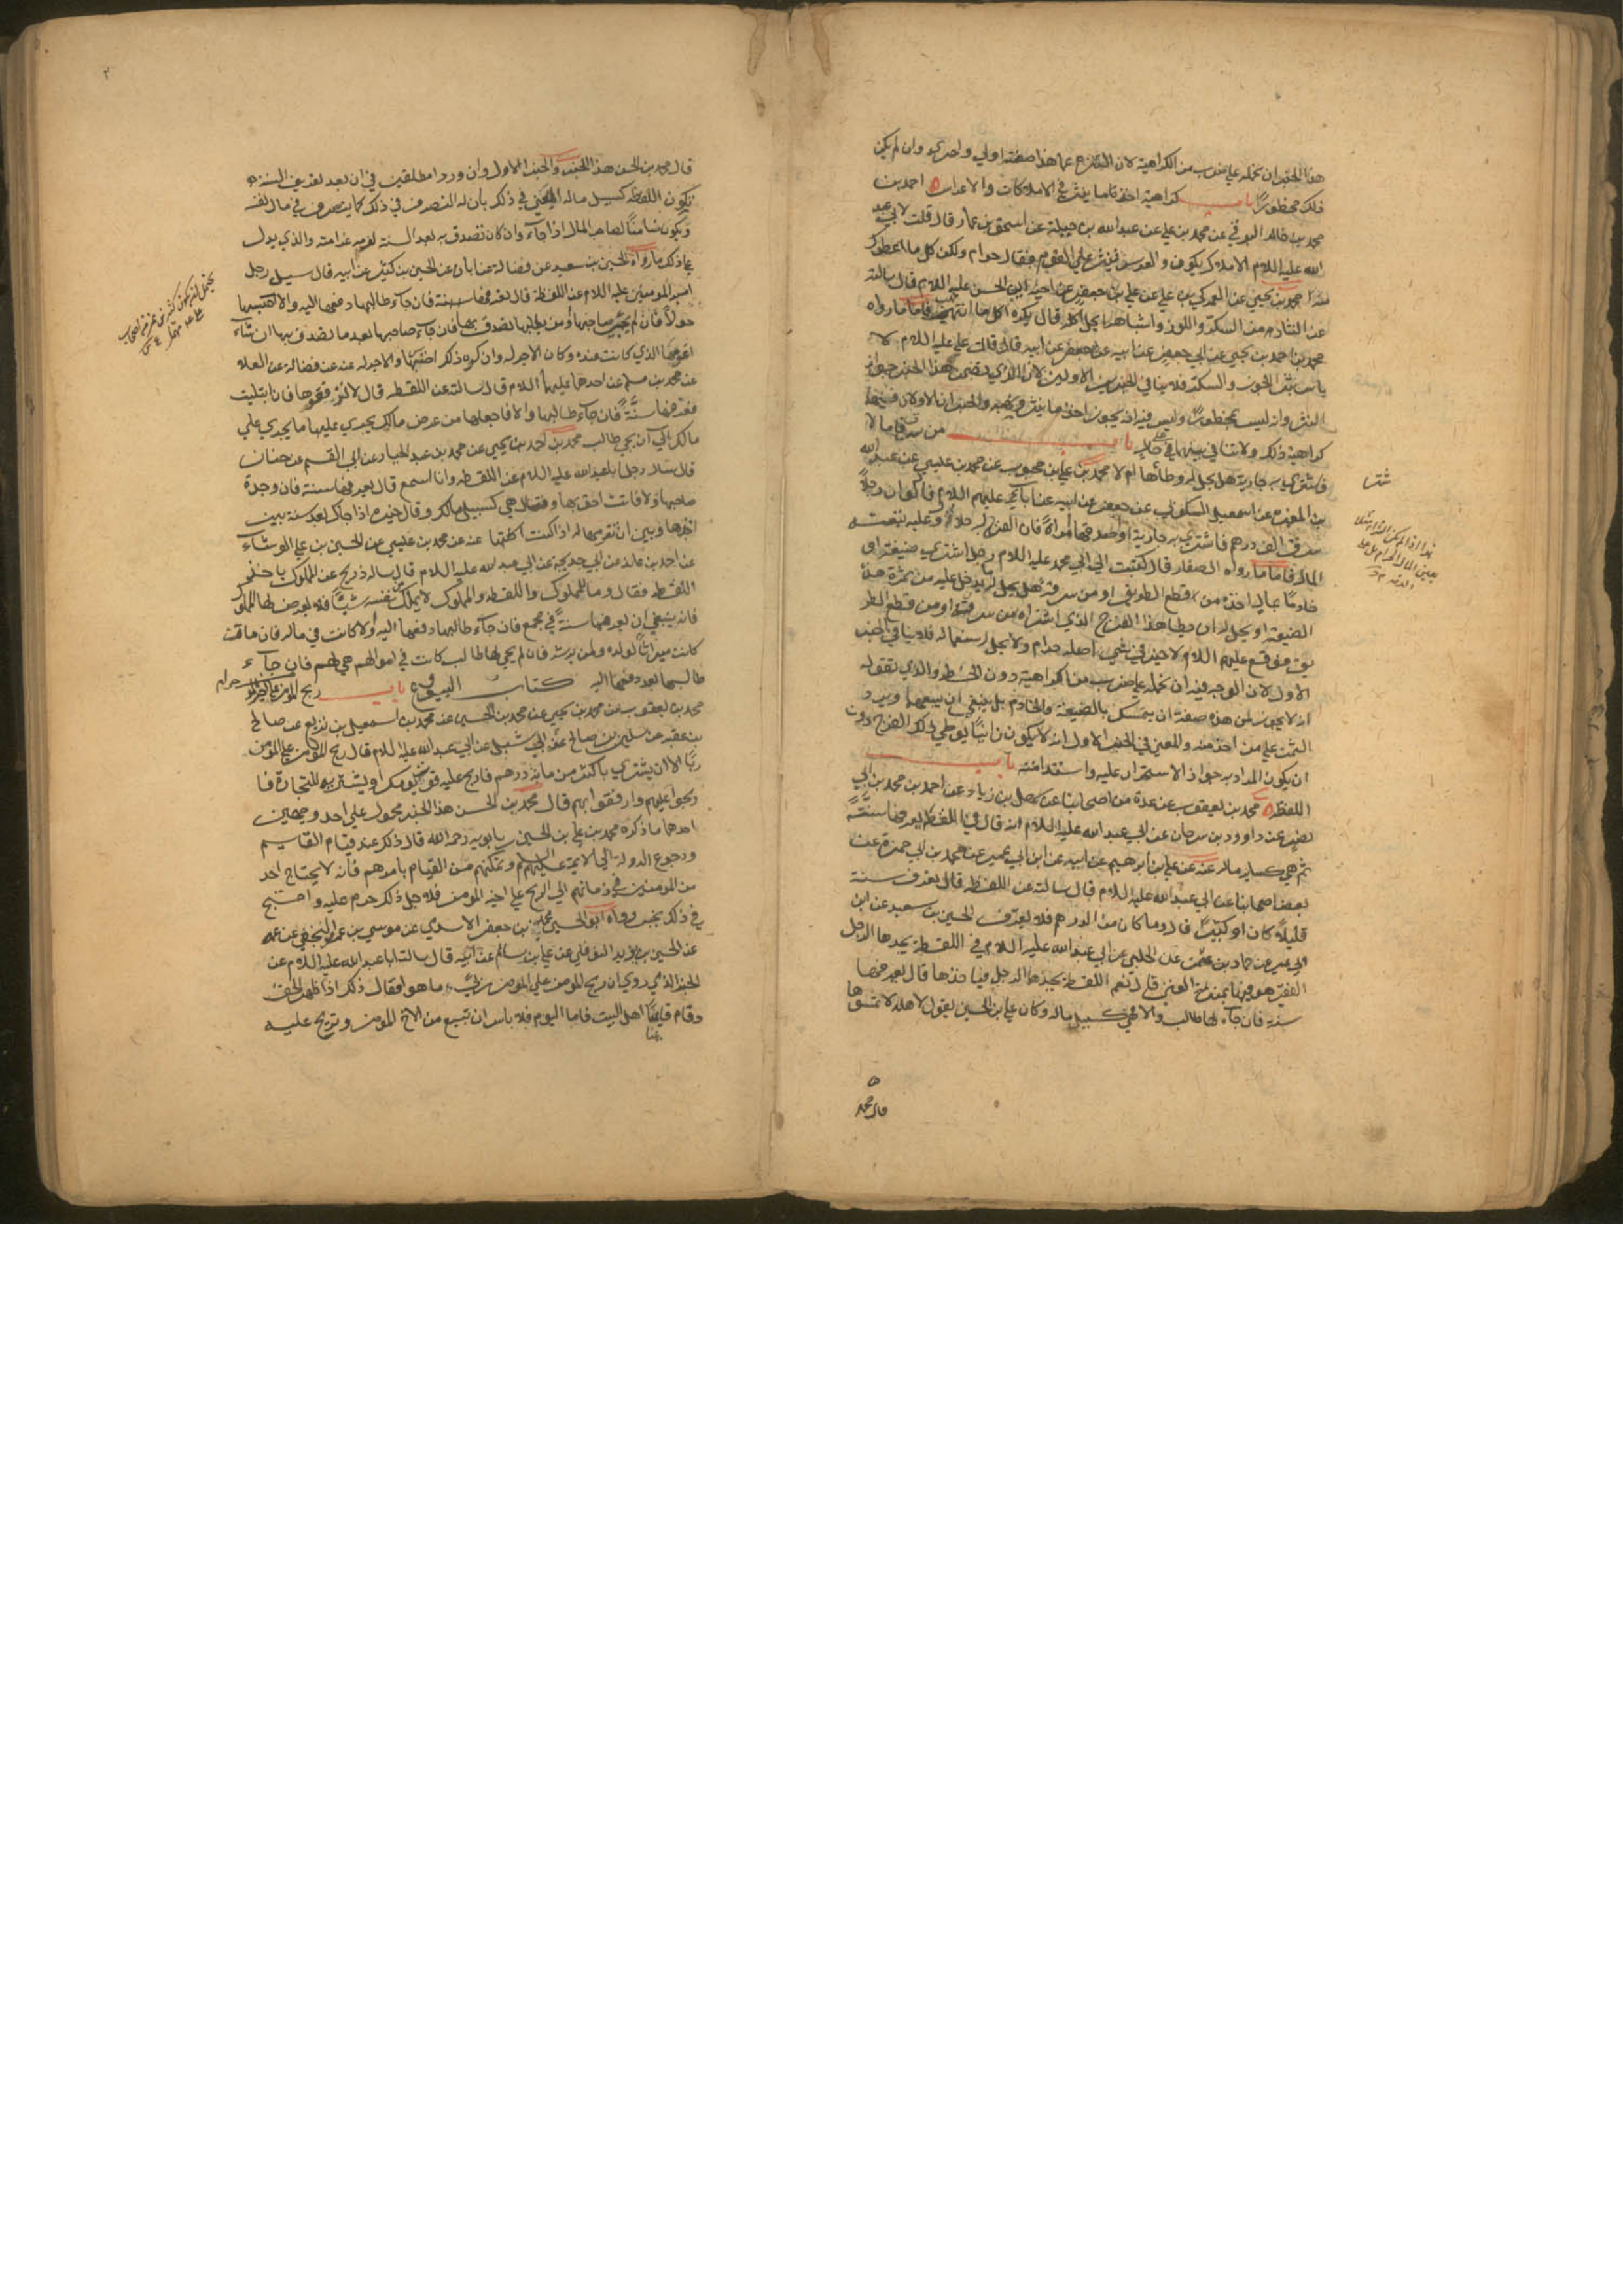 هذا الخبر ان نحمله على ضرب من الكراهية لان التنزه عما هذا صفته اولى واحرى وان لم يكن
ذلك محظورا باب كراهية اخذ ما ينثر في الاملاكات والاعراس احمد بن
محمد بن خالد البرقي عن محمد بن علي عن عبد الله بن جبلة عن اسحق بن عمار قال قلت لابي عبد
الله عليه السلام الاملاك يكون والعرس فينثر على القوم فقال حرام ولكن كل ما اعطوك
منه محمد بن يحيى عن العمركي بن علي عن علي بن جعفر عن اخيه ابي الحسن عليه السلام قال سالته
عن النثار من السكر واللوز واشباهه ايحل اكله قال يكره اكل ما انتهب فاما ما رواه
محمد بن احمد بن يحيى عن ابي جعفر عن ابيه عن جعفر عن ابيه قال قال علي عليه السلام لا
باس بنثر الجوز والسكر فلا ينافي الخبرين الاولين لان الذي تضمن هذا الخبر جواز
النثر وانه ليس بمحظور وليس فيه انه يجوز اخذ ما ينثر والخبران الاولان فيهما
كراهية ذلك ولا تنافي بينهما على حال باب من سرق مالا
فاشترى به جارية هل يحل له وطأها ام لا محمد بن علي بن محبوب عن محمد بن عيسى عن عبد الله
بن المغيرة عن اسمعيل السكوني عن جعفر عن ابيه عن آبائه عليهم السلام قال لو ان رجلا
سرق الف درهم فاشترى به جارية او اصدقها امراة فان الفرج له حلال وعليه تبعة
المال فاما ما رواه الصفار قال كتبت الى ابي محمد عليه السلام رجل اشترى ضيعة او
خادما بمال اخذه من قطع الطريق او من سرقة هل يحل له ما يدخل عليه من ثمرة هذه
الضيعة او يحل له ان يطأ هذا الفرج الذي اشتراه من سرقة او من قطع الطر
يق فوقع عليهم السلام لا خير في شيء اصله حرام ولا يحل استعماله فلا ينافي الخبر
الاول لان الوجه فيه ان نحمله على ضرب من الكراهية دون الحظر والذي تقوله
انه لا يجوز لمن هذه صفته ان يتمسك بالضيعة والخادم بل ينبغي ان يبيعهما ويرد
الثمن على من اخذ منه والمعنى في الخبر الاول انه لا يكون زانيا بوطي ذلك الفرج دون
ان يكون المراد به جواز الاستمرار عليه واستدامته باب
اللقطة محمد بن يعقوب عن عدة من اصحابنا عن سهل بن زياد عن احمد بن محمد بن ابي
نصر عن داوود بن سرحان عن ابي عبد الله عليه السلام انه قال في اللقطة يعرفها سنة
ثم هي كساير ماله عنه عن علي بن ابرهيم عن ابيه عن ابن ابي عمير عن محمد بن ابي حمزة عن
بعض اصحابنا عن ابي عبد الله عليه السلام قال سالته عن اللقطة قال تعرف سنة
قليلا كان او كثيرا قال وما كان دون الدرهم فلا يعرف الحسين بن سعيد عن ابن
ابي عمير عن حماد بن عثمن عن الحلبي عن ابي عبد الله عليه السلام في اللقطة يجدها الرجل
الفقير هو فيها بمنزلة الغني قال نعم اللقطة يجدها الرجل وياخذها قال يعرفها
سنة فان جاء لها طالب والا فهي كسبيل ماله وكان علي بن الحسين يقول لاهله لا تمسوها
قال محمد
قال محمد بن الحسن هذا الخبر والخبر الاول وان وردا مطلقين في ان بعد تعريف السنة
تكون اللقطة كسبيل ماله في ذلك بان له التصرف في ذلك كما يتصرف في مال نفسه
ويكون ضامنا لصاحب المال اذا جاء وان كان تصدق به بعد السنة لزمه غرامته والذي يدل
على ذلك ما رواه الحسين بن سعيد عن فضالة عن ابان عن الحسين بن كثير عن ابيه قال سيل رجل
امير المومنين عليه السلام عن اللقطة قال يعرفها سنة فان جاء طالبها دفعها اليه والا حبسها
حولا فان لم يجئ صاحبها او من يطلبها تصدق بها فان جاء صاحبها بعد ما تصدق بها ان شاء
اغترمها الذي كانت عنده وكان الاجر له وان كره ذلك احتسبها والاجر له عنه عن فضالة عن العلا
عن محمد بن مسلم عن احدهما عليهما السلام قال سالته عن اللقطة قال لا ترفعوها فان ابتليت
فعرفها سنة فان جاء طالبها والا فاجعلها من عرض مالك يجري عليها ما يجري على
مالك الى ان يجي طالب محمد بن احمد بن يحيى عن محمد بن عبد الجبار عن ابي القسم عن حنان
قال سال رجل ابا عبد الله عليه السلام عن اللقطة وانا اسمع قال تعرفها سنة فان وجدت
صاحبها والا فانت احق بها وقال هي كسبيل مالك وقال خيره اذا جاءك بعد سنة بين
اجرها وبين ان تغرمها له اذا كنت اكلتها عنه عن محمد بن عيسى عن الحسن بن علي الوشاء
عن احمد بن عايذ عن ابي خديجة عن ابي عبد الله عليه السلام قال ساله ذريح عن المملوك ياخذ
اللقطة فقال وما للمملوك واللقطة والمملوك لا يملك من نفسه شيئا فلا يعرض لها المملوك
فانه ينبغي ان يعرفها سنة في مجمع فان جاء طالبها دفعها اليه والا كانت في ماله فان مات
كانت ميراثا لولده ولمن يرثه فان لم يجئ لها طالب كانت في اموالهم هي لهم فان جاء
طالبها بعد دفعها اليه كتاب البيوع باب ربح المؤمن على المؤمن حرام
محمد بن يعقوب عن محمد بن يحيى عن محمد بن الحسين عن محمد بن اسمعيل بن بزيع عن صالح
بن عقبة عن سليمن بن صالح عن ابي شبل عن ابي عبد الله عليه السلام قال ربح المؤمن على المؤمن
ربا الا ان يشتري باكثر من ماية درهم فاربح عليه قوت يومك او يشتريه للتجارة فا
ربحوا عليهم وارفقوا بهم قال محمد بن الحسن هذا الخبر محمول على احد وجهين
احدهما ما ذكره محمد بن علي بن الحسين بن بابويه رحمه الله قال ذلك عند قيام القايم
ورجوع الدولة الى الايمة عليهم السلم وتمكنهم من القيام بامرهم فانه لا يحتاج احد
من المؤمنين في زمانهم الى الربح على اخيه المؤمن فلاجل ذلك حرم عليه واحتج
في ذلك بخبر رواه ابو الحسين محمد بن جعفر الاسدي عن موسى بن عمران النخعي عن عمه
عن الحسين بن يزيد النوفلي عن علي بن سالم عن ابيه قال سالت ابا عبد الله عليه السلام عن
الخبر الذي روي ان ربح المؤمن على المؤمن ربا ما هو فقال ذلك اذا ظهر الحق
وقام قايمنا اهل البيت فاما اليوم فلا باس ان تبيع من الاخ المؤمن وتربح عليه